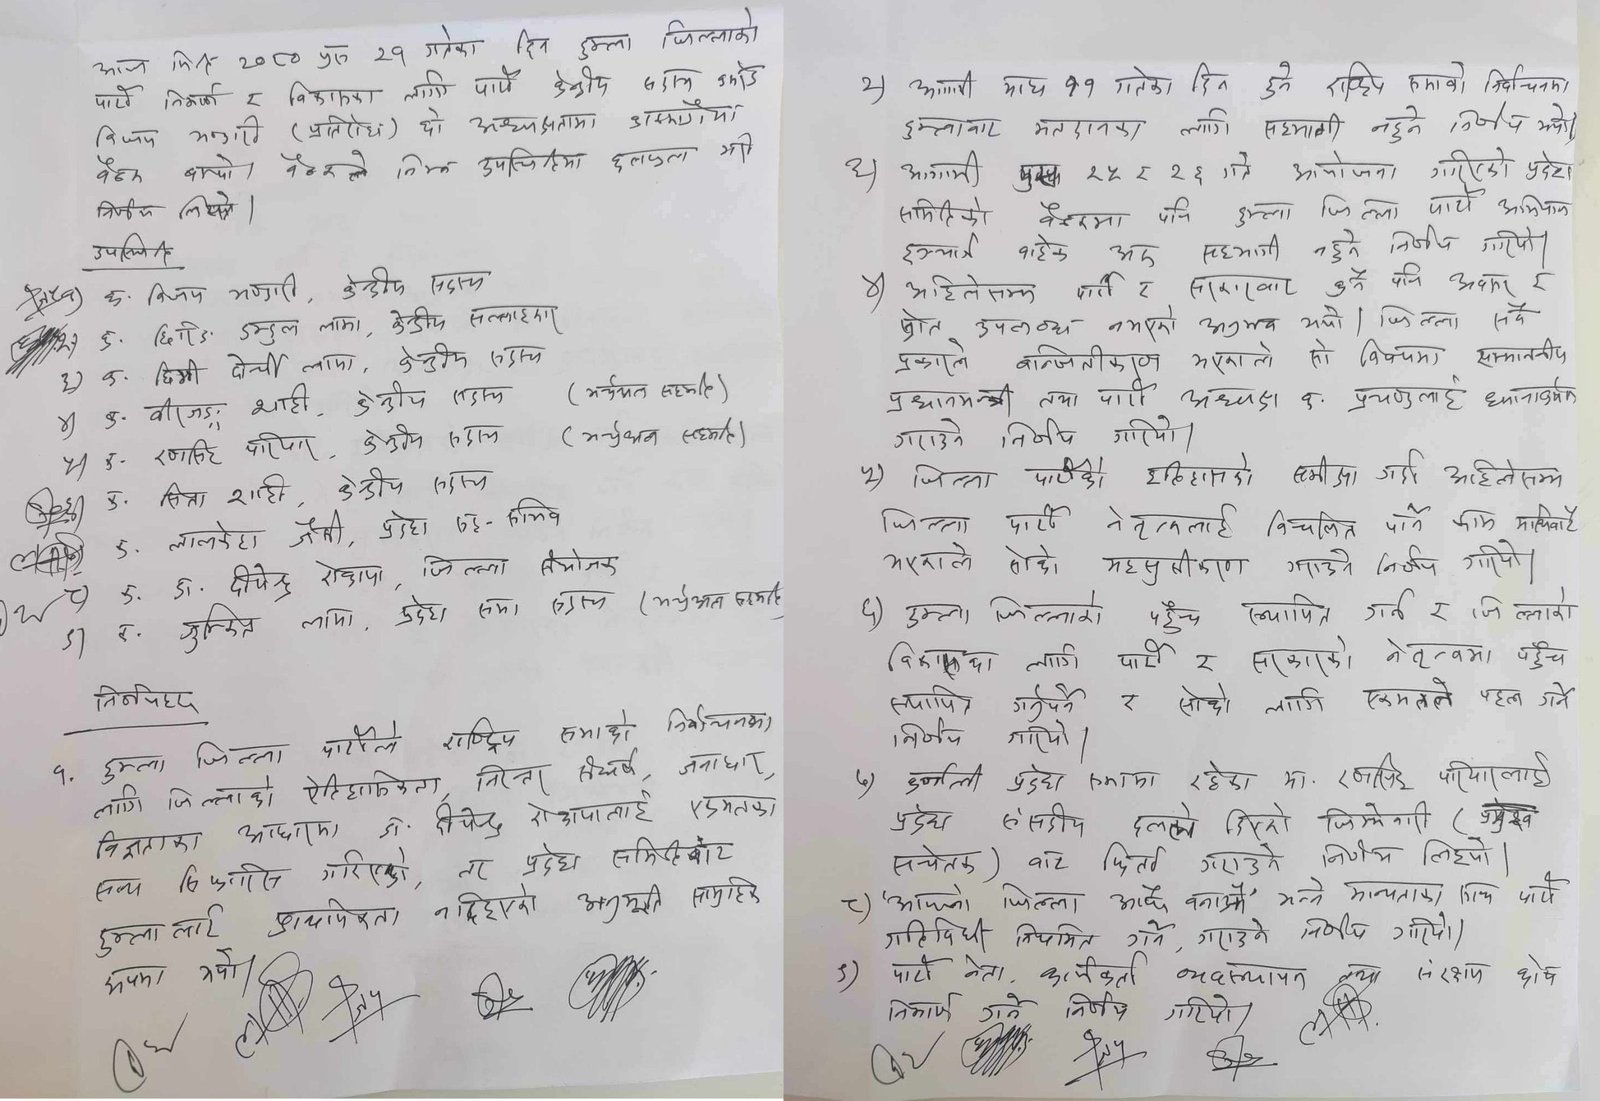 आज मिति २०८० पुष २१ गतेका दिन हुम्ला जिल्लाको
पार्टी निमार्ण र विकासका लागि पार्टी केन्द्रीय सदस्य कमरेड
विजय भण्डारी (प्रतिरोध) को अध्यक्षतामा काठमाण्डौमा
बैठक बस्यो। बैठकले निम्न उपस्थितिमा छलफल गरी
निर्णय लियो।
उपस्थिति
१) क. विजय भण्डारी, केन्द्रीय सदस्य
२) क. छिरिङ डम्डुल लामा, केन्द्रीय सल्लाहकार
३) क. छिमी दोर्ची लामा, केन्द्रीय सदस्य
४) क. वीरजङ्ग शाही, केन्द्रीय सदस्य (भर्चुअल सहमति)
५) क. रणसिंह परियार, केन्द्रीय सदस्य (भर्चुअल सहमति)
६) क. सिता शाही, केन्द्रीय सदस्य
७) क. लालकेश जैसी, प्रदेश सह-सचिव
८) क. डा. दीपेन्द्र रोकाया, जिल्ला संयोजक
९) क. लामा, प्रदेश सभा सदस्य (भर्चुअल सहमति)
निर्णयहरू
१. हुम्ला जिल्ला पार्टीले राष्ट्रिय सभाको निर्वाचनका
लागि जिल्लाको ऐतिहासिकता, निरन्तर संघर्ष, जनाधार,
विज्ञताका आधारमा डा. दीपेन्द्र रोकायालाई एकमतका
साथ सिफारिस गरिएको, तर प्रदेश समितिबाट
हुम्लालाई प्राथमिकता नदिइएको अनुभूति सामुहिक
रूपमा भयो।
२) आगामी माघ ११ गतेका दिन हुने राष्ट्रिय सभाको निर्वाचनमा
हुम्लाबाट मतदानका लागि सहभागी नहुने निर्णय भयो।
३) आगामी पुस २५ र २६ गते आयोजना गरिएको प्रदेश
समितिको बैठकमा पनि हुम्ला जिल्ला पार्टी अभियान
इन्चार्ज बाहेक अरू सहभागी नहुने निर्णय गरियो।
४) अहिलेसम्म पार्टी र सरकारबाट कुनै पनि अवसर र
स्रोत उपलब्ध नभएको अनुभव भयो। जिल्ला सबै
प्रकारले बञ्चितीकरण भएकाले सो विषयमा सम्माननीय
प्रधानमन्त्री तथा पार्टी अध्यक्ष क. प्रचण्डलाई ध्यानाकर्षण
गराउने निर्णय गरियो।
५) जिल्ला पार्टीको इतिहासको समीक्षा गर्दा अहिलेसम्म
जिल्ला पार्टी नेतृत्वलाई विचलित पार्ने काम माथिबाटै
भएकाले सोको महसुसीकरण गराउने निर्णय गरियो।
६) हुम्ला जिल्लाको पहुँच स्थापित गर्न र जिल्लाको
विकासका लागि पार्टी र सरकारको नेतृत्वमा पहुँच
स्थापित गर्नुपर्ने र सोको लागि एकमतले पहल गर्ने
निर्णय गरियो।
७) कर्णाली प्रदेश सभामा रहेका मा. रणसिंह परियारलाई
प्रदेश संसदीय दलले दिएको जिम्मेवारी (प्रमुख
सचेतक) बाट फिर्ता गराउने निर्णय लियो।
८) 'आफ्नो जिल्ला आफै बनाऔं' भन्ने मान्यताका साथ पार्टी
गतिविधी नियमित गर्ने, गराउने निर्णय गरियो।
९) पार्टी नेता, कार्यकर्ता व्यवस्थापन तथा संरक्षण कोष
निमार्ण गर्ने निर्णय गरियो।